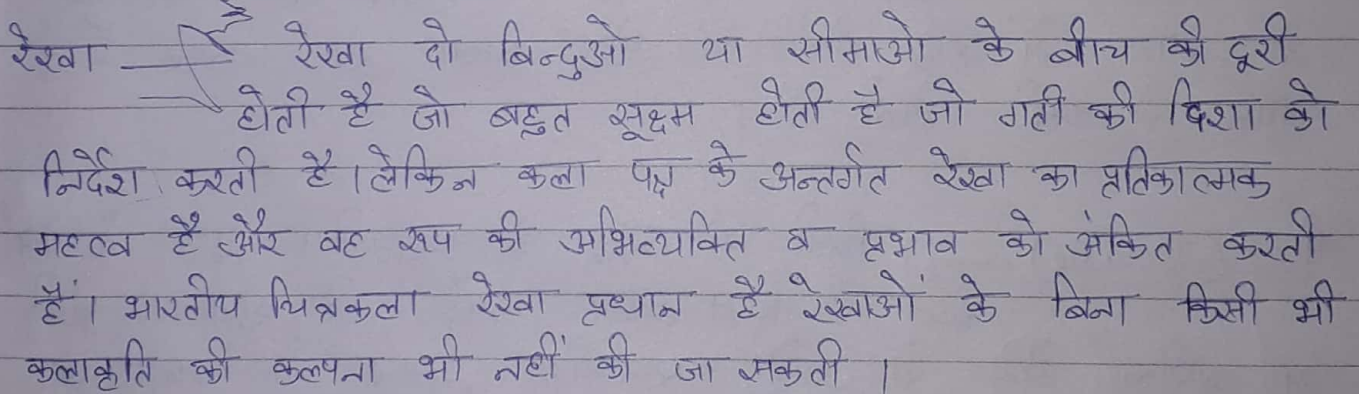 रेखा रेखा दो बिन्दुओ या सीमाओ के बीच की दूरी
होती है जो बहुत सूक्ष्म होती है जो गती की दिशा को
निर्देश करती है। लेकिन कला पक्ष के अन्तर्गत रेखा का प्रतिकात्मक
महत्व है और वह रूप की अभिव्यक्ति व प्रभाव को अंकित करती
हैं। भारतीय चित्रकला रेखा प्रधान है रेखाओं के बिना किसी भी
कलाकृति की कल्पना भी नहीं की जा सकती।